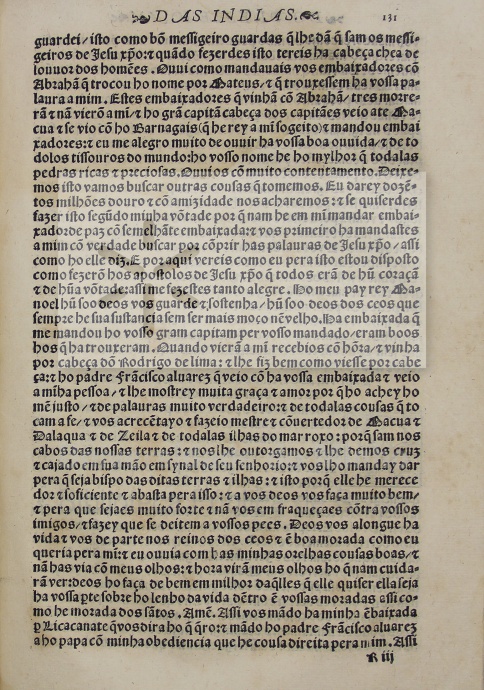 DAS INDIAS. 131
guardei/isto como bõ messigeiro guardas q̃ lhe dã q̃ sam os messi-
geiros de Jesu xp̃o:⁊ quãdo fezerdes isto tereis ha cabeça chea de
louuor dos homẽes. Ouui como mandauais vos embaixadores cõ
Abrahã q̃ trocou ho nome por Mateus/⁊ q̃ trouxessem ha vossa pa-
laura a mim. Estes embaixadores q̃ vinhã cõ Abrahã/tres morre-
rã ⁊ nã vierõ a mi/⁊ ho grã capitã cabeça dos capitães veio ate Ma-
cua ⁊ se vio cõ ho Barnagais(q̃ he rey a mi sogeito)⁊ mandou embai
xadores:⁊ eu me alegro muito de ouuir ha vossa boa ouuida/⁊ de to
dolos tissouros do mundo:ho vosso nome he ho mylhor q̃ todalas
pedras ricas ⁊ preciosas. Ouui os cõ muito contentamento. Deixe-
mos isto vamos buscar outras cousas q̃ tomemos. Eu darey dozẽ-
tos milhões douro ⁊ cõ amizidade nos acharemos:⁊ se quiserdes
fazer isto segũdo minha võtade por q̃ nam he em mi mandar embai-
xador de paz cõ semelhãte embaixada:⁊ vos primeiro ha mandastes
a mim cõ verdade buscar por cõprir has palauras de Jesu xp̃o/assi
como ho elle diz. E por aqui vereis como eu pera isto estou disposto
como fezerõ hos apostolos de Jesu xp̃o q̃ todos erã de hũ coraçã
⁊ de hũa võtade:assi me fezestes tanto alegre. Ho meu pay rey Ma-
noel hũ soo deos vos guarde ⁊ sostenha/hũ soo deos dos ceos que
sempre he sua sustancia sem ser mais moço nẽ velho. Ha embaixada q̃
me mandou ho vosso gram capitam per vosso mandado/eram boos
hos q̃ ha trouxeram. Quando vierã a mi recebios cõ hõra/⁊ vinha
por cabeça dõ Rodrigo de lima:⁊ lhe fiz bem como viesse por cabe
ça:⁊ ho padre frãcisco aluarez q̃ veio cõ ha vossa embaixada ⁊ veio
a mĩha pessoa/⁊ lhe mostrey muita graça ⁊ amor por q̃ ho achey ho
mẽ justo/⁊ de palauras muito verdadeiro:⁊ de todalas cousas q̃ to
cam a fe/⁊ vos acrecẽtayo ⁊ fazeio mestre ⁊ cõuertedor de Macua ⁊
Dalaqua ⁊ de Zeila ⁊ de todalas ilhas do mar roxo:porq̃ sam nos
cabos das nossas terras:⁊ nos lhe outorgamos ⁊ lhe demos cruz
⁊ cajado em sua mão em synal de seu senhorio:⁊ vos lho manday dar
pera q̃ seja bispo das ditas terras ⁊ ilhas:⁊ isto porq̃ elle he merece
dor ⁊ soficiente ⁊ abasta pera isso:⁊ a vos deos vos faça muito bem/
⁊ pera que sejaes muito forte ⁊ nã vos em fraqueçaes cõtra vossos
imigos/⁊ fazey que se deitem a vossos pees. Deos vos alongue ha
vida ⁊ vos de parte nos reinos dos ceos ⁊ ẽ boa morada como eu
queria pera mi:⁊ eu ouuia com has minhas orelhas cousas boas/⁊
nã has via cõ meus olhos:⁊ hora virã meus olhos ho q̃ nam cuida-
rã ver:deos ho faça de bem em milhor daq̃lles q̃ elle quiser ella seja
ha vossa pte sobre ho lenho da vida dẽtro ẽ vossas moradas assi co-
mo he morada dos sãtos. Amẽ. Assi vos mãdo ha minha ẽbaixada
p Licacanate q̃ vos dira ho q̃ q̃ro:⁊ mãdo ho padre frãcisco aluarez
a ho papa cõ minha obediencia que he cousa direita pera mim. Assi
R iij